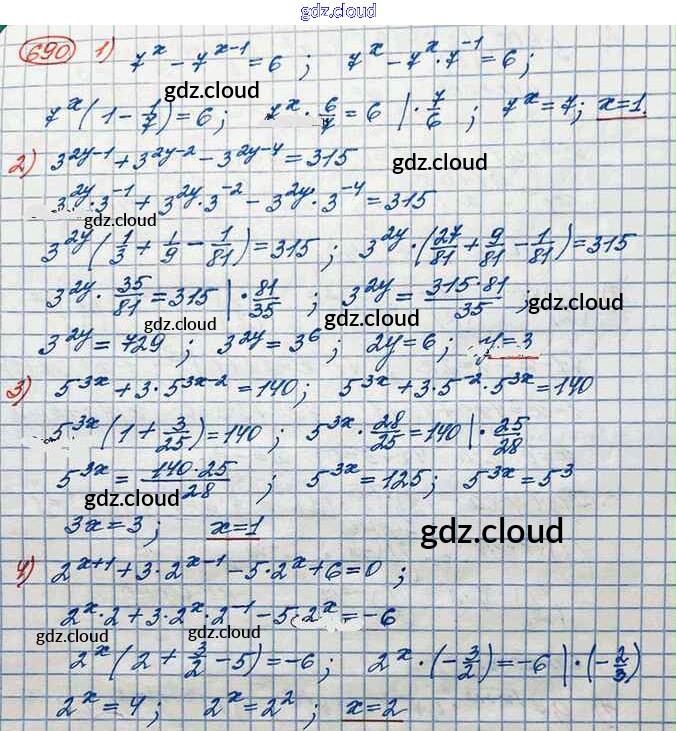 gdz.cloud
gdz.cloud
690 1) 7^x - 7^{x-1} = 6 ; 7^x - 7^x · 7^{-1} = 6 ;
gdz.cloud
7^x (1 - 1/7) = 6 ; 7^x · 6/7 = 6 | · 7/6 ; 7^x = 7 ; x = 1.
2) 3^{2y-1} + 3^{2y-2} - 3^{2y-4} = 315
gdz.cloud
3^{2y} · 3^{-1} + 3^{2y} · 3^{-2} - 3^{2y} · 3^{-4} = 315
gdz.cloud
3^{2y} (1/3 + 1/9 - 1/81) = 315 ; 3^{2y} · (27/81 + 9/81 - 1/81) = 315
3^{2y} · 35/81 = 315 | · 81/35 ; 3^{2y} = 315·81/35 ;
gdz.cloud gdz.cloud gdz.cloud
3^{2y} = 729 ; 3^{2y} = 3^6 ; 2y = 6 ; y = 3
3) 5^{3x} + 3 · 5^{3x-2} = 140 ; 5^{3x} + 3 · 5^{-2} · 5^{3x} = 140
gdz.cloud
5^{3x} (1 + 3/25) = 140 ; 5^{3x} · 28/25 = 140 | · 25/28
5^{3x} = 140·25/28 ; 5^{3x} = 125 ; 5^{3x} = 5^3
gdz.cloud
3x = 3 ; x = 1
gdz.cloud
4) 2^{x+1} + 3 · 2^{x-1} - 5 · 2^x + 6 = 0 ;
2^x · 2 + 3 · 2^x · 2^{-1} - 5 · 2^x = -6
gdz.cloud gdz.cloud
2^x (2 + 3/2 - 5) = -6 ; 2^x · (-3/2) = -6 | · (-2/3)
gdz.cloud
2^x = 4 ; 2^x = 2^2 ; x = 2
gdz.cloud